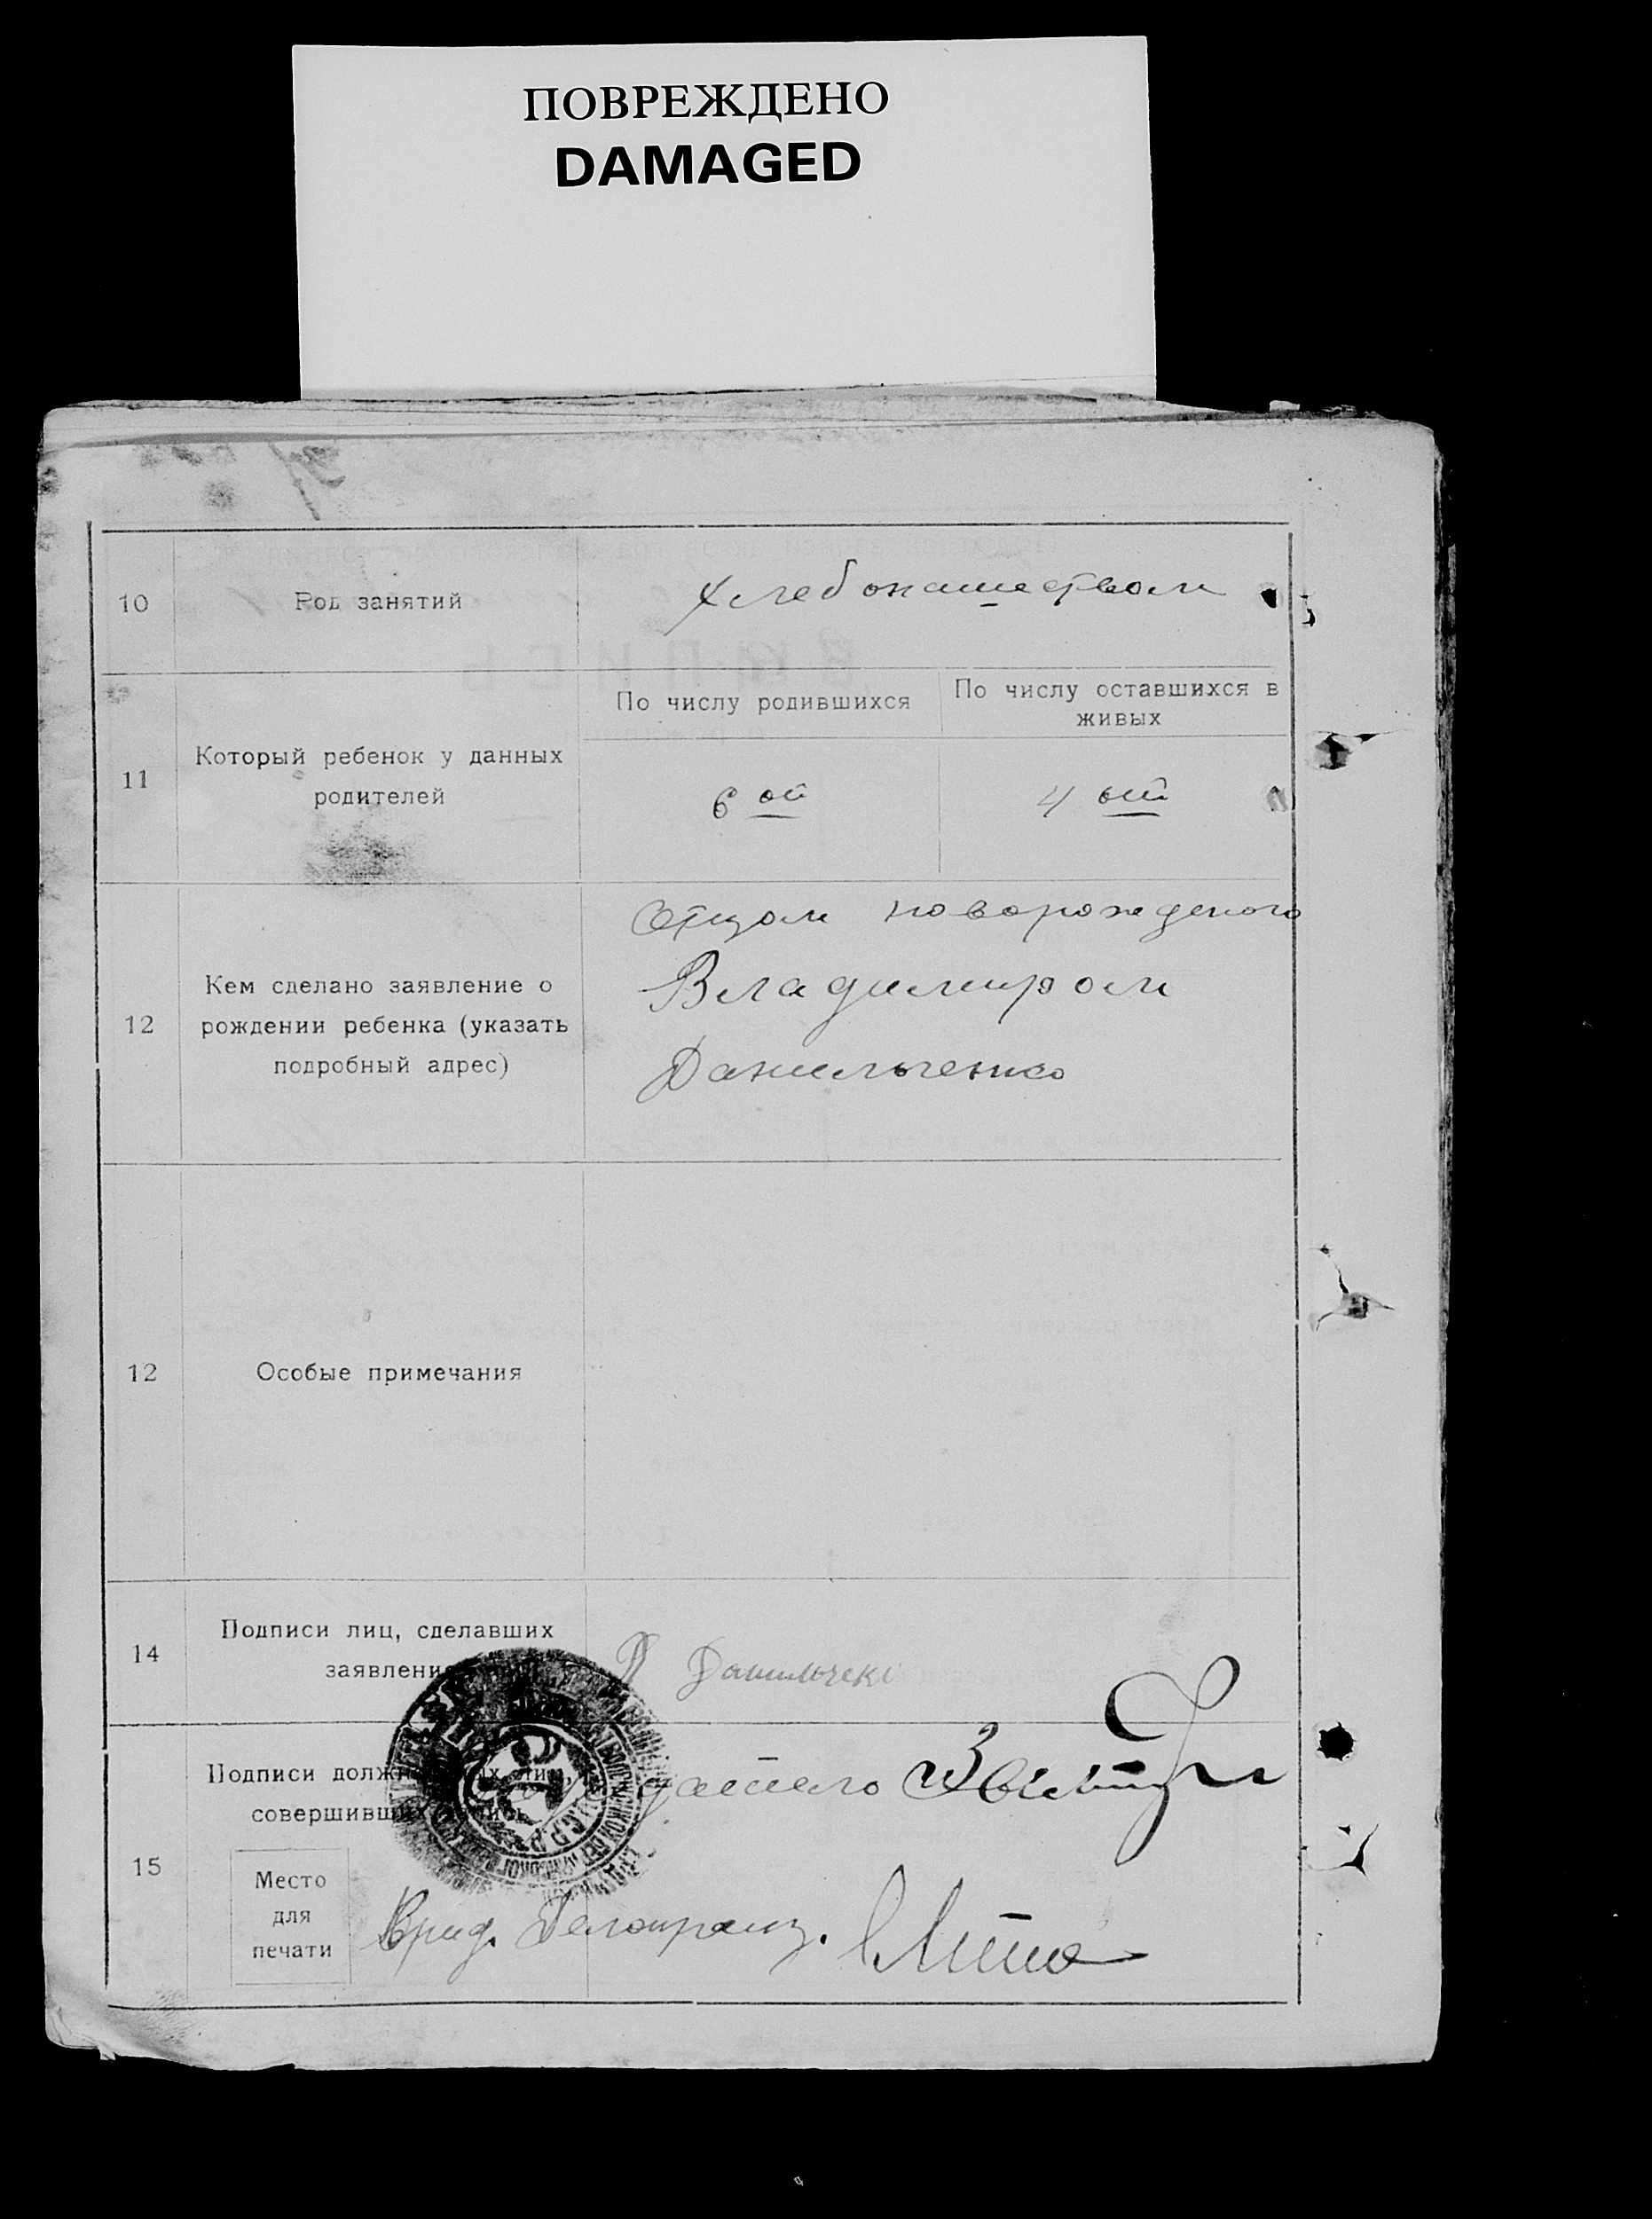 ПОВРЕЖДЕНО
DAMAGED
10
Род занятий
Хлебопашеством
11
Который ребенок у данных
родителей
По числу родившихся
По числу оставшихся в
живых
6 ой
4 ый
12
Кем сделано заявление о
рождении ребенка (указать
подробный адрес)
Отцом новорожденого
Владимиром
Данильченко
12
Особые примечания
14
Подписи лиц, сделавших
заявление
Данильченко
15
Подписи должностных лиц,
совершивших запись
Место
для
печати
Врид. Делопроиз.